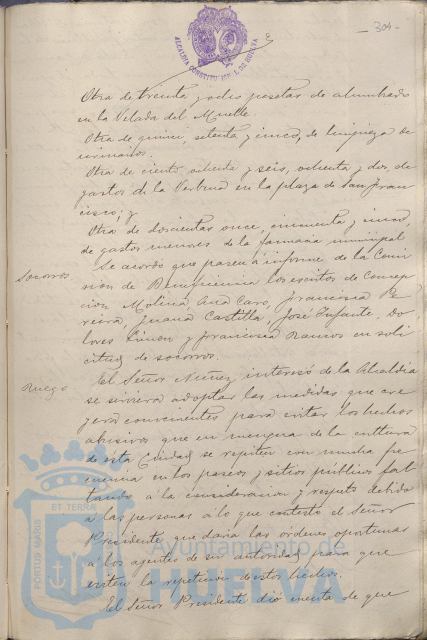 - 304 -
ALCALDIA CONSTITUCIONAL DE HUELVA
Otra de treinta y ocho pesetas de alumbrado
en la Velada del Muelle.
Otra de quince, setenta y cinco, de limpieza de
urinarios.
Otra de ciento ochenta y seis, ochenta y dos, de
gastos de la Verbena en la plaza de San Fran
cisco; y
Otra de doscientas once, cincuenta y cinco,
de gastos menores de la farmacia municipal
Socorros
Se acordó que pasen á informe de la Comi
sión de Beneficencia los escritos de Concep
cion Molina, Ana Caro, Francisca Pe
reira, Juana Castilla, José Infante, Do
lores Limon y Francisca Ramos en soli
citud de socorros.
Ruego
El Señor Nuñez interesó de la Alcaldía
se sirviera adoptar las medidas que cre
yera convenientes para evitar los hechos
abusivos que en mengua de la cultura
de esta Ciudad se repiten con mucha fre
cuencia en los paseos y sitios públicos fal
tando á la consideracion y respeto debido
á las personas á lo que contestó el Señor
Presidente que daria las órdenes oportunas
á los agentes de su autoridad para que
eviten la repeticion de estos hechos.
El Señor Presidente dió cuenta de que
PORTUS MARIS ET TERRAE
Ayuntamiento de
HUELVA